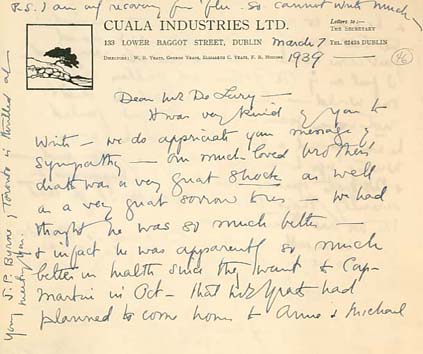 P.S. I am just recovering from 'flu. So cannot write much —
CUALA INDUSTRIES LTD.
133 LOWER BAGGOT STREET, DUBLIN
DIRECTORS: W. B. YEATS, GEORGE YEATS, ELIZABETH C. YEATS, F. R. HIGGINS
Letters to:—
THE SECRETARY
TEL. 62455 DUBLIN
March 7
1939
46
Dear Mr De Lury —
It was very kind of you to
write — we do appreciate your message of
sympathy — our much loved brother's
death was a very great shock as well
as a very great sorrow to us — we had
thought he was so much better —
& in fact he was apparently so much
better in health since they went to Cap-
Martin in Oct — that Mrs Yeats had
planned to come home to Anne & Michael
J. P. Byrne of Toronto is thrilled at
your